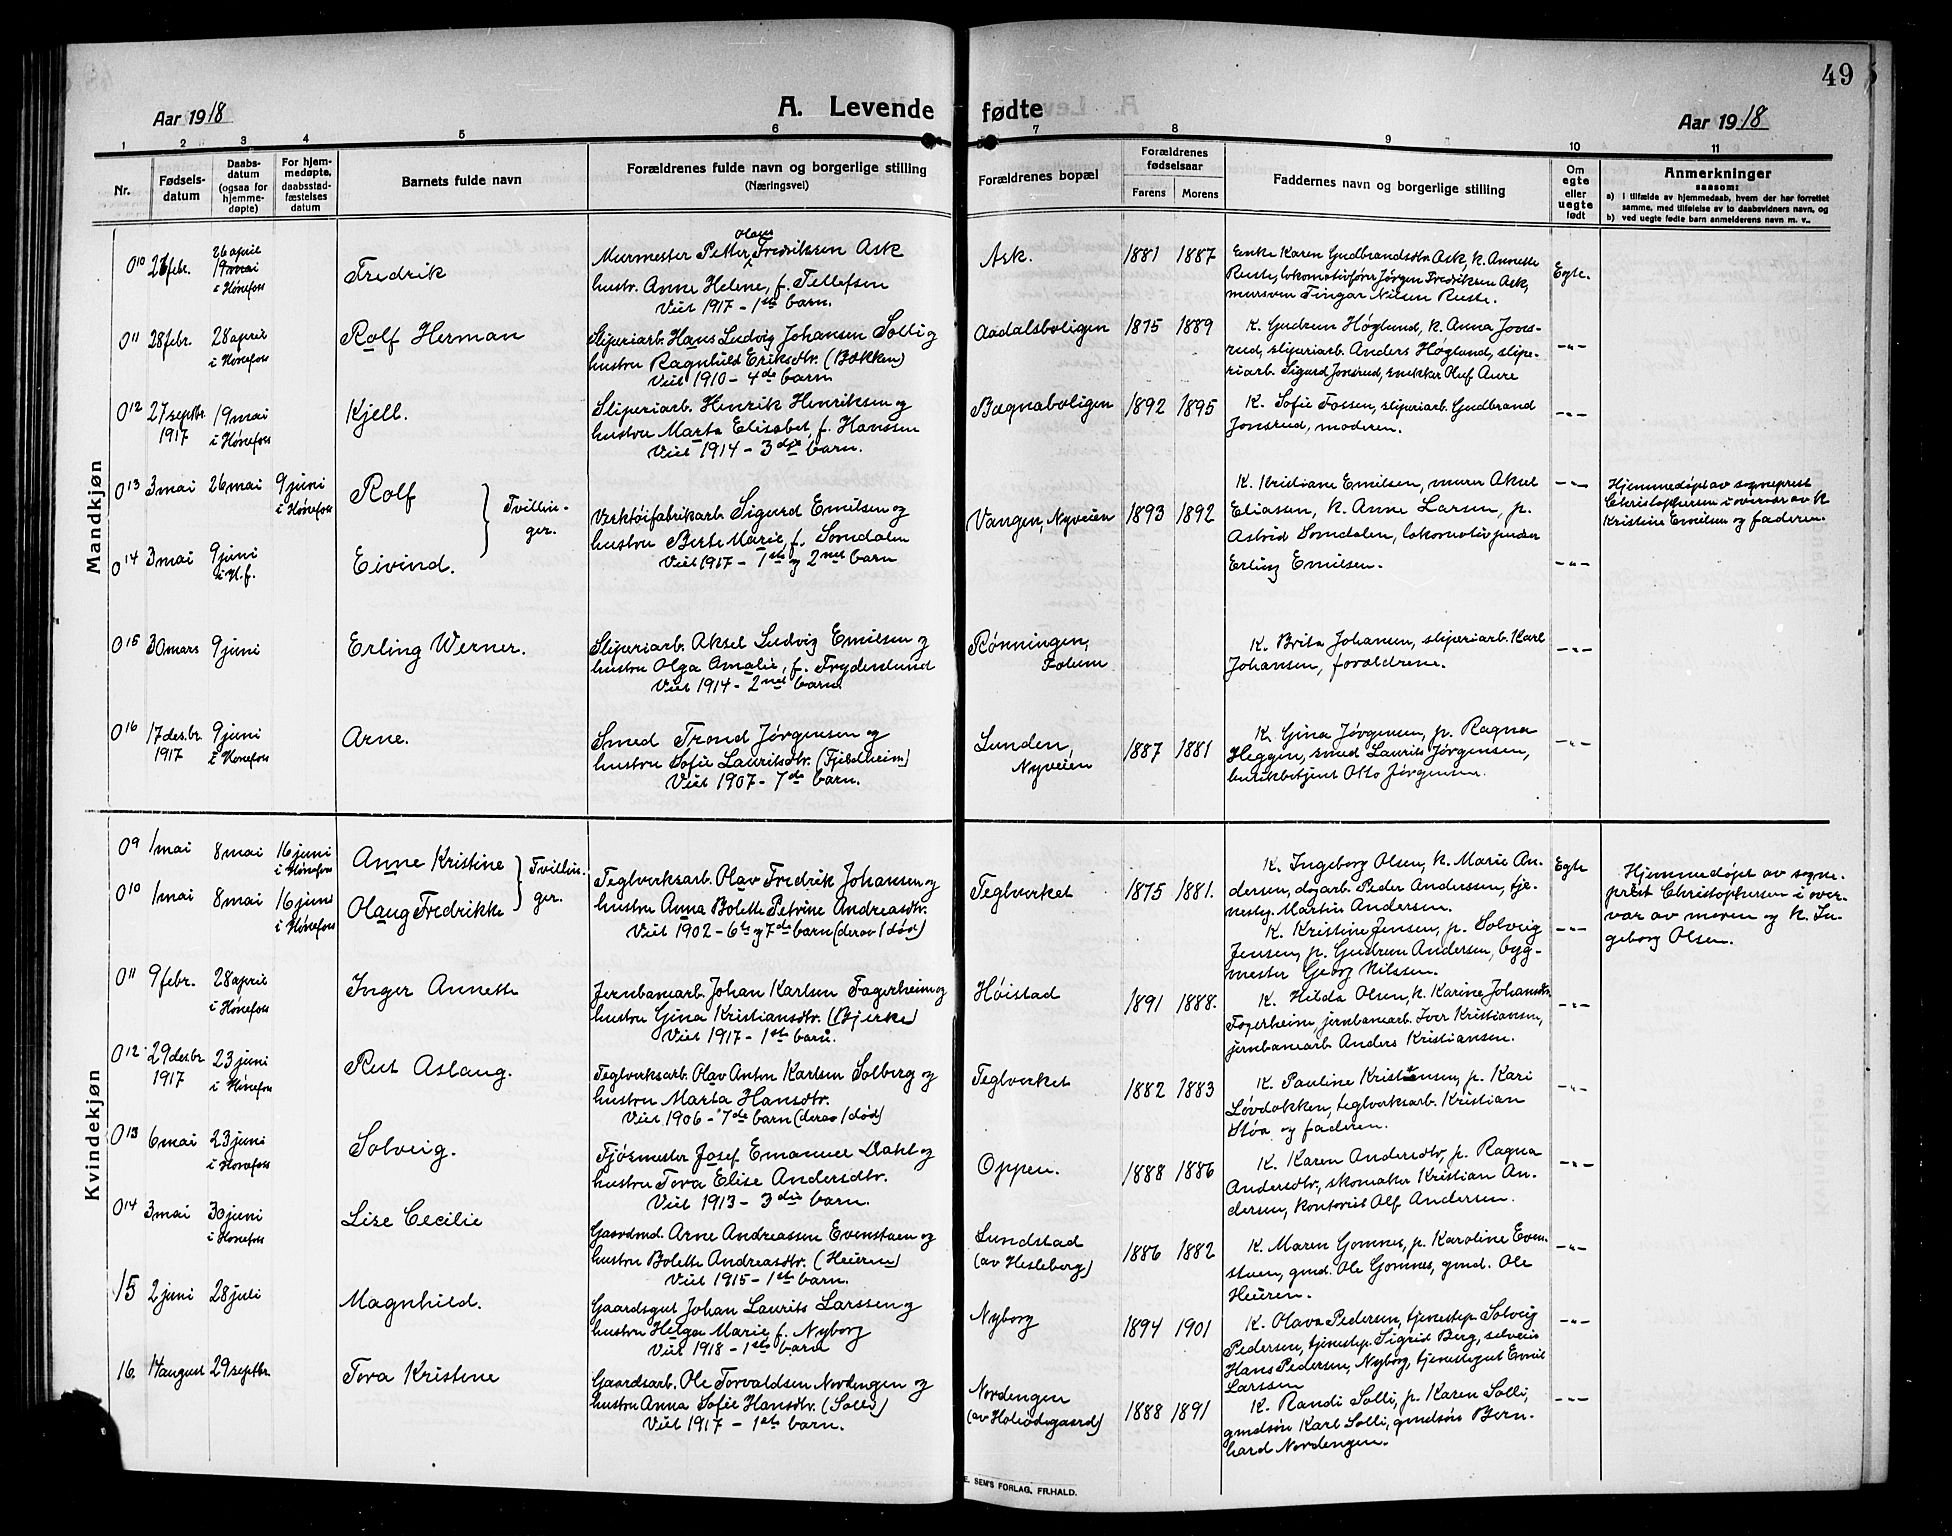 49
Aar 1918
A. Levende fødte
Aar 1918
1 2 3 4 5 6 7 8 9 10 11
Nr.
Fødsels-
datum
Daabs-
datum
(ogsaa for
hjemme-
døpte)
For hjem-
medøpte,
daabsstad-
fæstelses
datum
Barnets fulde navn
Forældrenes fulde navn og borgerlige stilling
(Næringsvei)
Forældrenes bopæl
Forældrenes
fødselsaar
Farens Morens
Faddernes navn og borgerlige stilling
Om
egte
eller
uegte
født
Anmerkninger
saasom:
a) i tilfælde av hjemmedaab, hvem der har forrettet
samme, med tilføielse av to daabsvidners navn, og
b) ved uegte fødte barn anmelderens navn m. v..
Mandkjøn
010 26 febr.
26 april
19 mai
i Hønefoss
Fredrik
Olaus
Murmester Petter Fredriksen Ask
hustr. Anne Helene, f. Tellefsen
Viet 1917 - 1ste barn.
Ask.
1881 1887
Enke Karen Gudbrandsdtr. Ask, k. Annette
Ruste, lokomotivfører Jørgen Fredriksen Ask,
mursven Fingar Nilsen Ruste.
Egte.
011 28 febr. 28 april
i Hønefoss
Rolf Herman
Sliperiarb. Hans Ludvig Johansen Solli og
hustru Ragnhild Eriksdtr. (Bakken)
Viet 1910 - 4de barn
Aadalsboligen
1875 1889
K. Gudrun Høglund, k. Anna Jons-
rud, sliperiarb. Anders Høglund, slipe-
riarb. Sigurd Jonsrud, snekker Oluf Aure
-"-
012 27 septbr.
1917
19 mai
i Hønefoss
Kjell.
Sliperiarb. Henrik Henriksen og
hustru Marta Elisabet, f. Hanssen
Viet 1914 - 3dje barn.
Bægnaboligen
1892 1895
K. Sofie Fossen, sliperiarb. Gudbrand
Jonsrud, moderen.
-"-
013 3 mai 26 mai 9 juni
i Hønefoss
Rolf
Tvillin-
ger.
Verktøifabrikarb. Sigurd Emilsen og
hustru Berte Marie, f. Somdalen
Viet 1917 - 1ste og 2net barn
Vangen, Nyveien
1893 1892
K. Kristiane Emilsen, murer Aksel
Eliassen, k. Anne Larsen, p.
Astrid Somdalen, lokomotivpudser
Erling Emilsen.
-"-
Hjemmedøpt av sogneprest
Christophersen i overvær av k.
Kristine Emilsen og faderen.
014 3 mai 9 juni
i H.f.
Eivind.
-"-
015 30 mars 9 juni
Erling Werner.
Sliperiarb. Aksel Ludvig Emilsen og
hustru Olga Amalie, f. Frydenlund
Viet 1914 - 2net barn.
Rønningen,
Folum
K. Brita Johansen, sliperiarb. Karl
Johansen, forældrene.
-"-
016 17 desbr.
1917
9 juni
i Hønefoss
Arne.
Smed Trond Jørgensen og
hustru Sofie Lauritsdtr. (Fjeldheim)
Viet 1907 - 7de barn.
Lunden,
Nyveien
1887 1881
K. Gina Jørgensen, p. Ragna
Heggen, smed Laurits Jørgensen,
butikbetjent Otto Jørgensen.
-"-
Kvindekjøn
09 1 mai 8 mai 16 juni
i Hønefoss
Anne Kristine
Tvillin-
ger.
010 1 mai 8 mai 16 juni
i Hønefoss
Olaug Fredrikke
Teglverksarb. Olav Fredrik Johansen og
hustru Anna Bolette Petrine Andreasdtr.
Viet 1902 - 6te og 7de barn (derav 1 død)
Teglverket
1875 1881.
K. Ingeborg Olsen, k. Marie An-
dersen, dagarb. Peder Andersen, tje-
nestg. Martin Andersen.
K. Kristine Jensen, p. Solveig
Jensen, p. Gudrun Andersen, byg-
mester Georg Nilssen.
Egte
-"-
Hjemmedøpt av sogne-
prest Christophersen i over-
vær av moren og k. In-
geborg Olsen.
011 9 febr. 28 april
i Hønefoss
Inger Annette
Jernbanearb. Johan Karlsen Fagerheim og
hustru Gina Kristiansdtr. (Bjerke)
Viet 1917 - 1ste barn.
Høistad
1891 1888.
K. Hilda Olsen, k. Karine Johansdtr.
Fagerheim, jernbanearb. Iver Kristiansen,
jernbanearb Anders Kristiansen.
-"-
012 29 desbr
1917
23 juni
i Hønefoss
Rut Aslaug.
Teglverksarb. Olav Anton Karlsen Solberg og
hustru Marta Hansdtr.
Viet 1906 - 7de barn (derav 1 død)
Teglverket
1882 1883
K. Pauline Kristensen, p. Kari
Løvdokken, teglverksarb. Kristian
Støa og faderen.
-"-
013 6 mai 23 juni
i Hønefoss
Solveig.
Fjøsmester Josef Emanuel Dahl og
hustru Tora Elise Andersdtr.
Viet 1913 - 3die barn.
Oppen.
1888 1886
K. Karen Andersdtr, p. Ragna
Andersdtr, skomaker Kristian An-
dersen, kontorist Alf Andersen.
-"-
014 3 mai 30 juni
i Hønefoss
Lise Cecilie
Gaardmd. Arne Andreassen Evenstuen og
hustru Bolette Andreasdtr. (Heieren)
Viet 1915 - 1ste barn.
Lundstad
(av Hesleberg)
1886 1882
K. Maren Gomnes, p. Karoline Even-
stuen, gmd. Ole Gomnes, gmd. Ole
Heieren.
-"-
15 2 juni 28 juli
Magnhild.
Gaardsgut Johan Laurits Larssen og
hustru Helga Marie f. Nyborg
Viet 1918 - 1ste barn
Nyborg
1894 1901
K. Olava Pedersen, tjenestep. Solveig
Pedersen, tjenestep. Sigrid Berg, selveier
Hans Pedersen, Nyborg, tjenestegut Emil
Larssen
-"-
16. 14 august 29 septbr.
Tora Kristine
Gaardsarb. Ole Torvaldsen Nordengen og
hustru Anna Sofie Hansdtr. (Solli)
Viet 1917 - 1ste barn.
Nordengen
1888 1891
K. Randi Solli, p. Karen Solli,
gmdsøn Karl Solli, gmdsøn Bern-
hard Nordengen.
-"-
E. SEM'S FORLAG, FR.HALD.